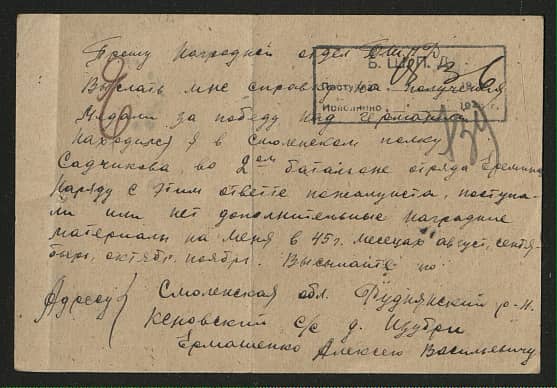 Прошу Наградной отдел БШПД
Выслать мне справку на получения
Медали за победу над германией
Находился я в смоленском полку
Садчикова, во 2ом батальоне отряда Еремина
Наряду с этим ответте пожалуиста, поступа-
ли или нет дополнительные наградные
материалы на меня в 45г. месецах август, сентя-
брь, октябр. ноябрь. Высылайте по
Адресу Смоленская обл. Руднянский р-н.
с/с д. Шубри
Ермашенко Алексею Васильевичу
Б. Ш. П. Д.
Поступило
Исполнено